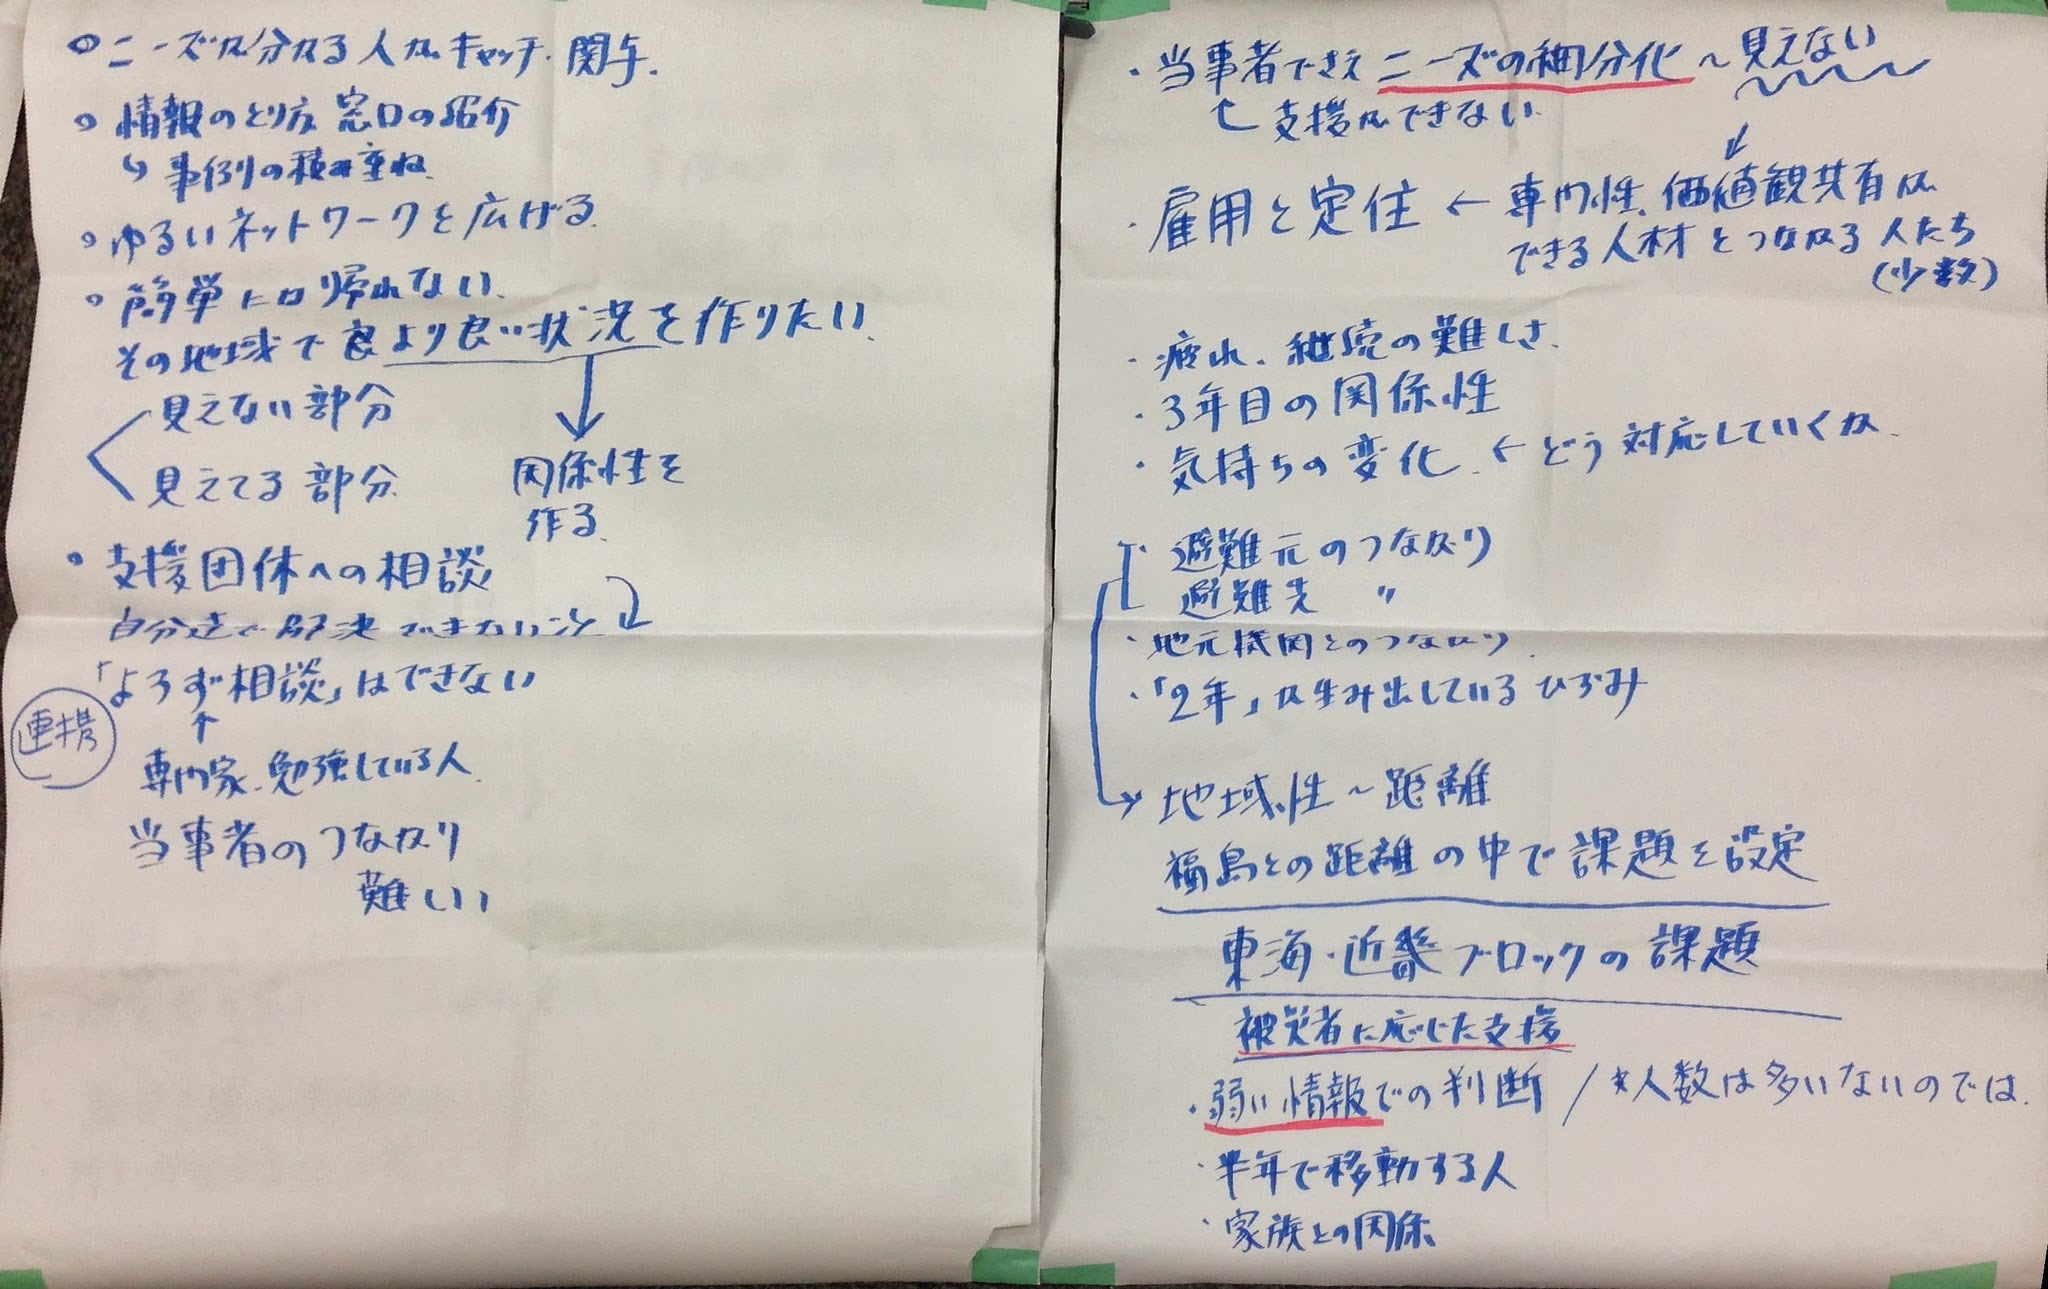 ニーズが分かる人がキャッチ・関与.
情報のとり方 窓口の紹介
↳ 事例の積み重ね
ゆるいネットワークを広げる.
簡単には帰れない.
その地域で良より良い状況を作りたい.
見えない部分
見えてる部分
関係性を
作る.
支援団体への相談
自分達で解決できないこと
「よろず相談」はできない
連携
↑
専門家、勉強している人.
当事者のつながり
難しい
・当事者でさえニーズの細分化~見えない
支援ができない.
・雇用と定住 ← 専門性、価値観共有が
できる人材とつながる人たち
(少数)
・疲れ、継続の難しさ.
・3年目の関係性
・気持ちの変化. ← どう対応していくか.
避難元のつながり
避難先 〃
・地元機関とのつながり
・「2年」が生み出しているひずみ
→ 地域性~距離
福島との距離の中で課題を設定
東海・近畿ブロックの課題
被災者に応じた支援
・弱い情報での判断 / *人数は多いないのでは.
・半年で移動する人
・家族との関係